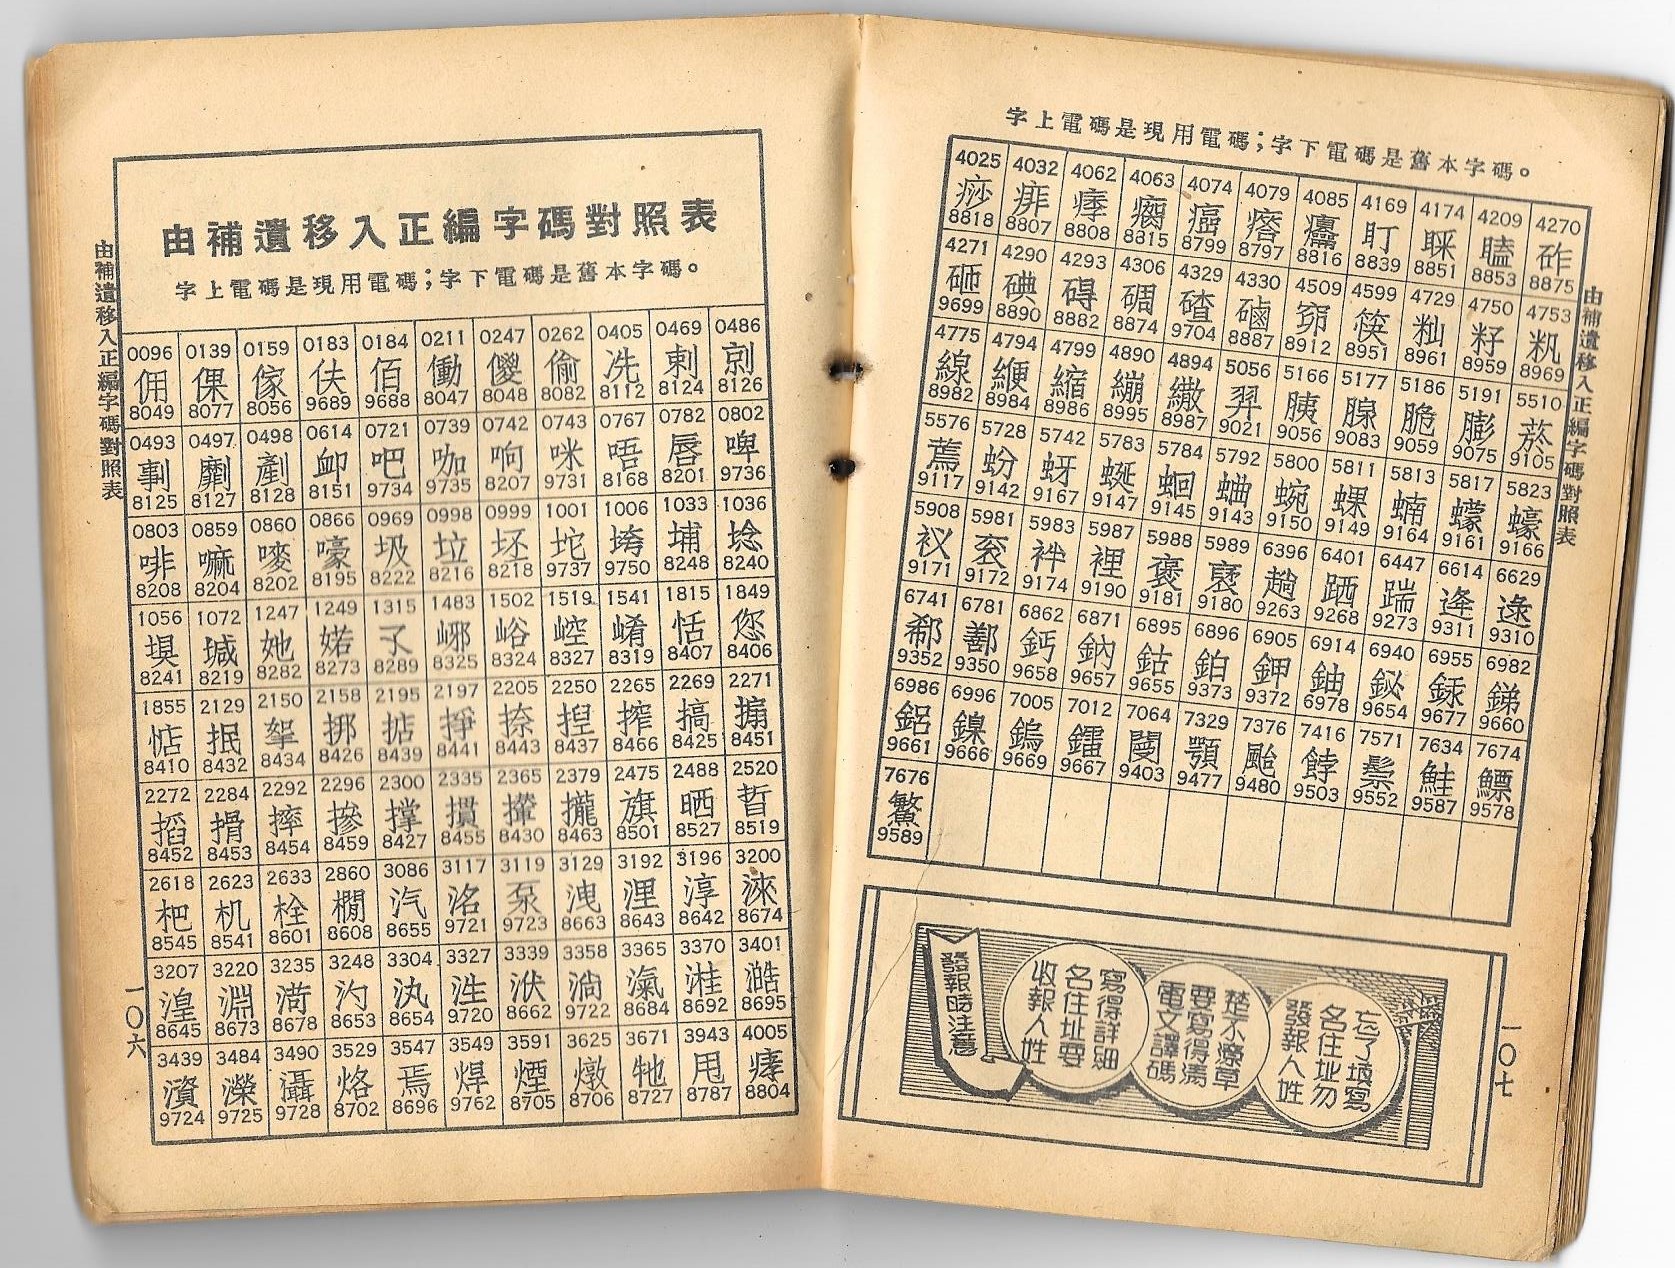 由補遺移入正編字碼對照表
字上電碼是現用電碼；字下電碼是舊本字碼。
0096 0139 0159 0183 0184 0211 0247 0262 0405 0469 0486
佣 倮 傢 伕 佰 働 儍 偷 冼 剌 剠
8049 8077 8056 9689 9688 8047 8048 8082 8112 8124 8126
0493 0497 0498 0614 0721 0739 0742 0743 0767 0782 0802
剚 劘 劏 卹 吧 咖 响 咪 唔 唇 啤
8125 8127 8128 8151 9734 9735 8207 9731 8168 8201 9736
0803 0859 0860 0866 0969 0998 0999 1001 1006 1033 1036
啡 嘛 嘜 嚎 圾 垃 坯 坨 垮 埔 埝
8208 8204 8202 8195 8222 8216 8218 9737 9750 8248 8240
1056 1072 1247 1249 1315 1483 1502 1519 1541 1815 1849
塓 堿 她 婼 孓 峫 峪 崆 崤 恬 您
8241 8219 8282 8273 8289 8325 8324 8327 8319 8407 8406
1855 2129 2150 2158 2195 2197 2205 2250 2265 2269 2271
惦 抿 挐 挪 掂 掙 捺 揑 搾 搞 搧
8410 8432 8434 8426 8439 8441 8443 8437 8466 8425 8451
2272 2284 2292 2296 2300 2335 2365 2379 2475 2488 2520
搯 搰 摔 摻 撑 摜 攆 攏 旗 晒 晢
8452 8453 8454 8459 8427 8455 8430 8463 8501 8527 8519
2618 2623 2633 2860 3086 3117 3119 3129 3192 3196 3200
杷 机 栓 橺 汽 洺 泵 洩 浬 淳 淶
8545 8541 8601 8608 8655 9721 9723 8663 8643 8642 8674
3207 3220 3235 3248 3304 3327 3339 3358 3365 3370 3401
湟 淵 渮 汋 汍 泩 洑 淌 滊 溎 澔
8645 8673 8678 8653 8654 9720 8662 9722 8684 8692 8695
3439 3484 3490 3529 3547 3549 3591 3625 3671 3943 4005
濱 濼 灄 烙 焉 焊 煙 燉 牠 甩 痵
9724 9725 9728 8702 8696 9762 8705 8706 8727 8787 8804
由補遺移入正編字碼對照表
一〇六
字上電碼是現用電碼；字下電碼是舊本字碼。
4025 4032 4062 4063 4074 4079 4085 4169 4174 4209 4270
痧 痱 瘘 癇 癌 瘩 癟 盯 眯 瞌 砟
8818 8807 8808 8815 8799 8797 8816 8839 8851 8853 8875
4271 4290 4293 4306 4329 4330 4509 4599 4729 4750 4753
砸 碘 碍 碉 碴 磠 窌 筷 籼 籽 籸
9699 8890 8882 8874 9704 8887 8912 8951 8961 8959 8969
4775 4794 4799 4890 4894 5056 5166 5177 5186 5191 5510
線 緶 縮 繃 繳 羿 胰 腺 脆 膨 菸
8982 8984 8986 8995 8987 9021 9056 9083 9059 9075 9105
5576 5728 5742 5783 5784 5792 5800 5811 5813 5817 5823
蔫 蚡 蚜 蜒 蛔 蛐 蜿 蜾 蝻 蠓 蠔
9117 9142 9167 9147 9145 9143 9150 9149 9164 9161 9166
5908 5981 5983 5987 5988 5989 6396 6401 6447 6614 6629
衩 衮 袢 裡 褒 褎 趟 跴 踹 逄 逯
9171 9172 9174 9190 9181 9180 9263 9268 9273 9311 9310
6741 6781 6862 6871 6895 6896 6905 6914 6940 6955 6982
郗 鄯 鈣 鈉 鈷 鉑 鉀 鈾 鉍 銾 銻
9352 9350 9658 9657 9655 9373 9372 6978 9654 9677 9660
6986 6996 7005 7012 7064 7329 7376 7416 7571 7634 7674
鋁 鎳 鎢 鐳 閿 顎 颱 餑 鬃 鮭 鰾
9661 9666 9669 9667 9403 9477 9480 9503 9552 9587 9578
7676
鰵
9589
由補遺移入正編字碼對照表
發報時注意
收報人姓
名住址要
寫得詳細
電文譯碼
要寫得清
楚不潦草
發報人姓
名住址勿
忘了填寫
一〇七